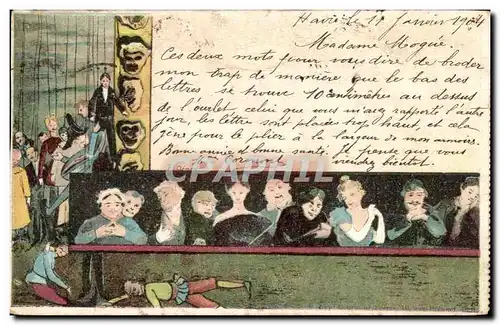 Havre le 11 Janvier 1904
Madame Moguë.
Ces deux mots pour vous dire de broder
mon trap de manière que le bas des
lettres se trouve 10 centimètres au dessus
de l'ourlet celui que vous m'avez rapporté l'autre
jour, les lettre sont placés trop haut, et cela
gêne pour le plier à la largeur de mon armoire.
Bonne année et bonne santé. Je pense que vous
viendrez bientôt.
CPAPHIL.COM